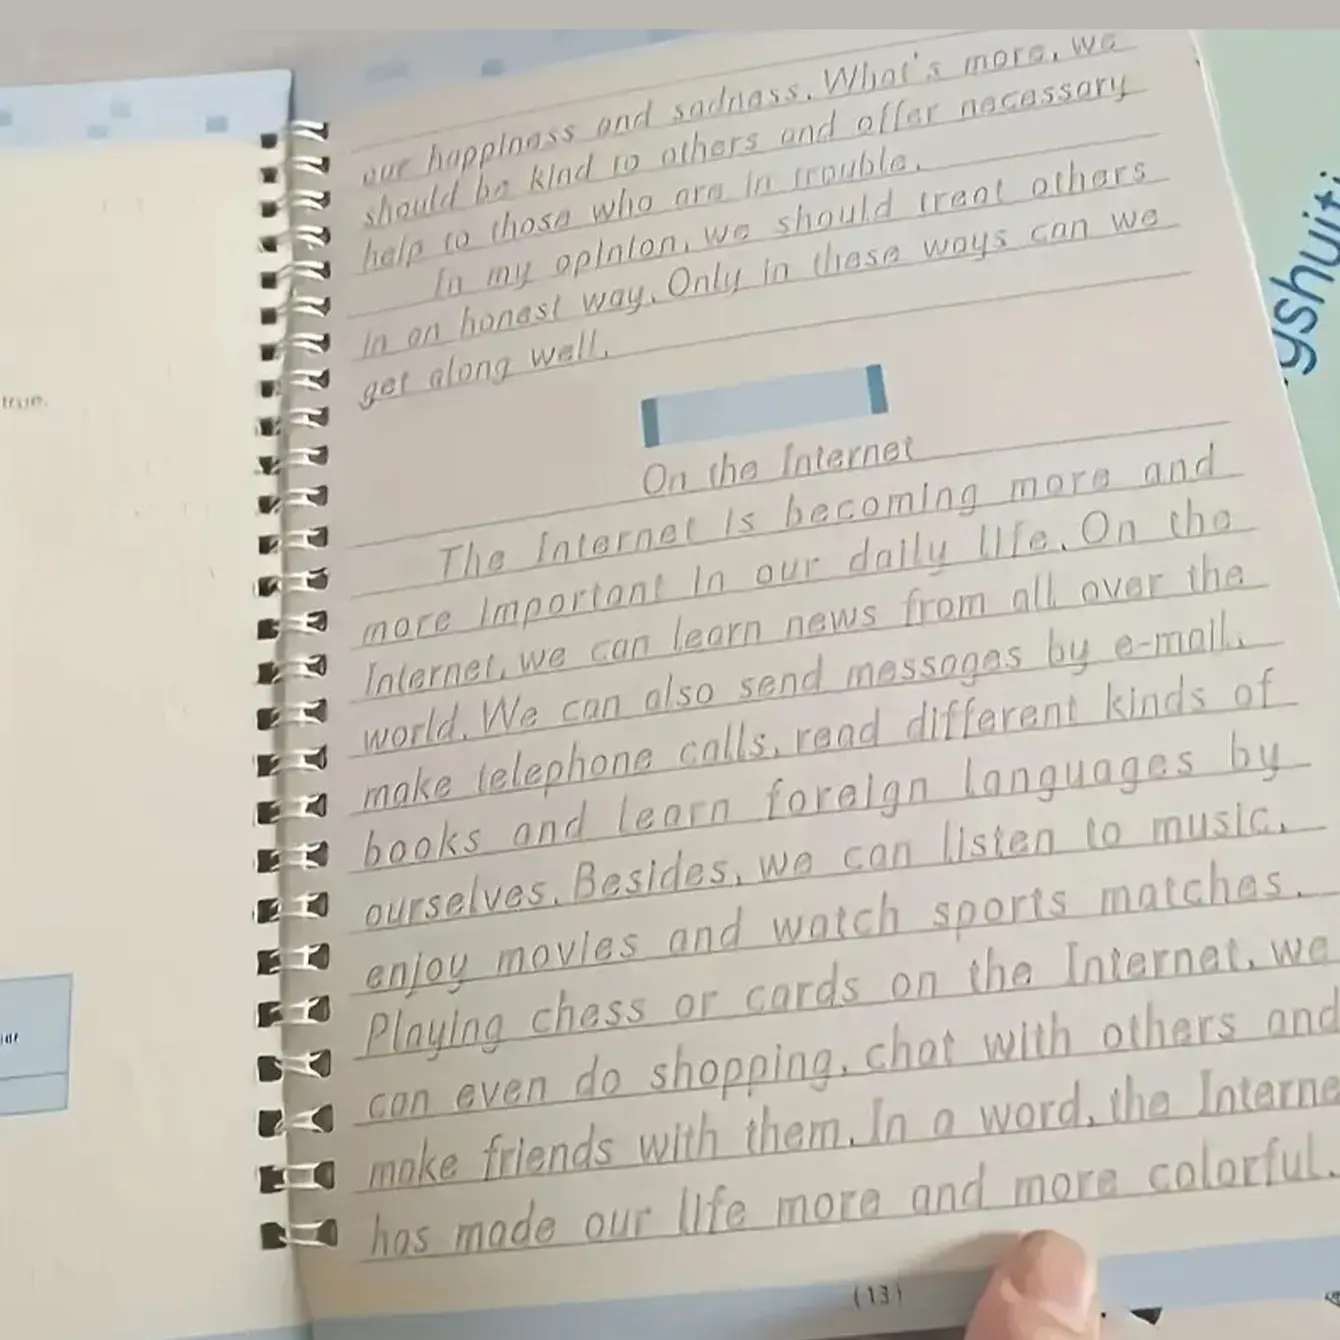 true.
our happiness and sadness. What's more, we
should be kind to others and offer necessary
help to those who are in trouble.
In my opinion, we should treat others
in an honest way. Only in these ways can we
get along well.
On the Internet
The Internet is becoming more and
more important in our daily life. On the
Internet, we can learn news from all over the
world. We can also send messages by e-mail,
make telephone calls, read different kinds of
books and learn foreign languages by
ourselves. Besides, we can listen to music,
enjoy movies and watch sports matches.
Playing chess or cards on the Internet, we
can even do shopping, chat with others and
make friends with them. In a word, the Interne
has made our life more and more colorful.
(13)
yshuiti